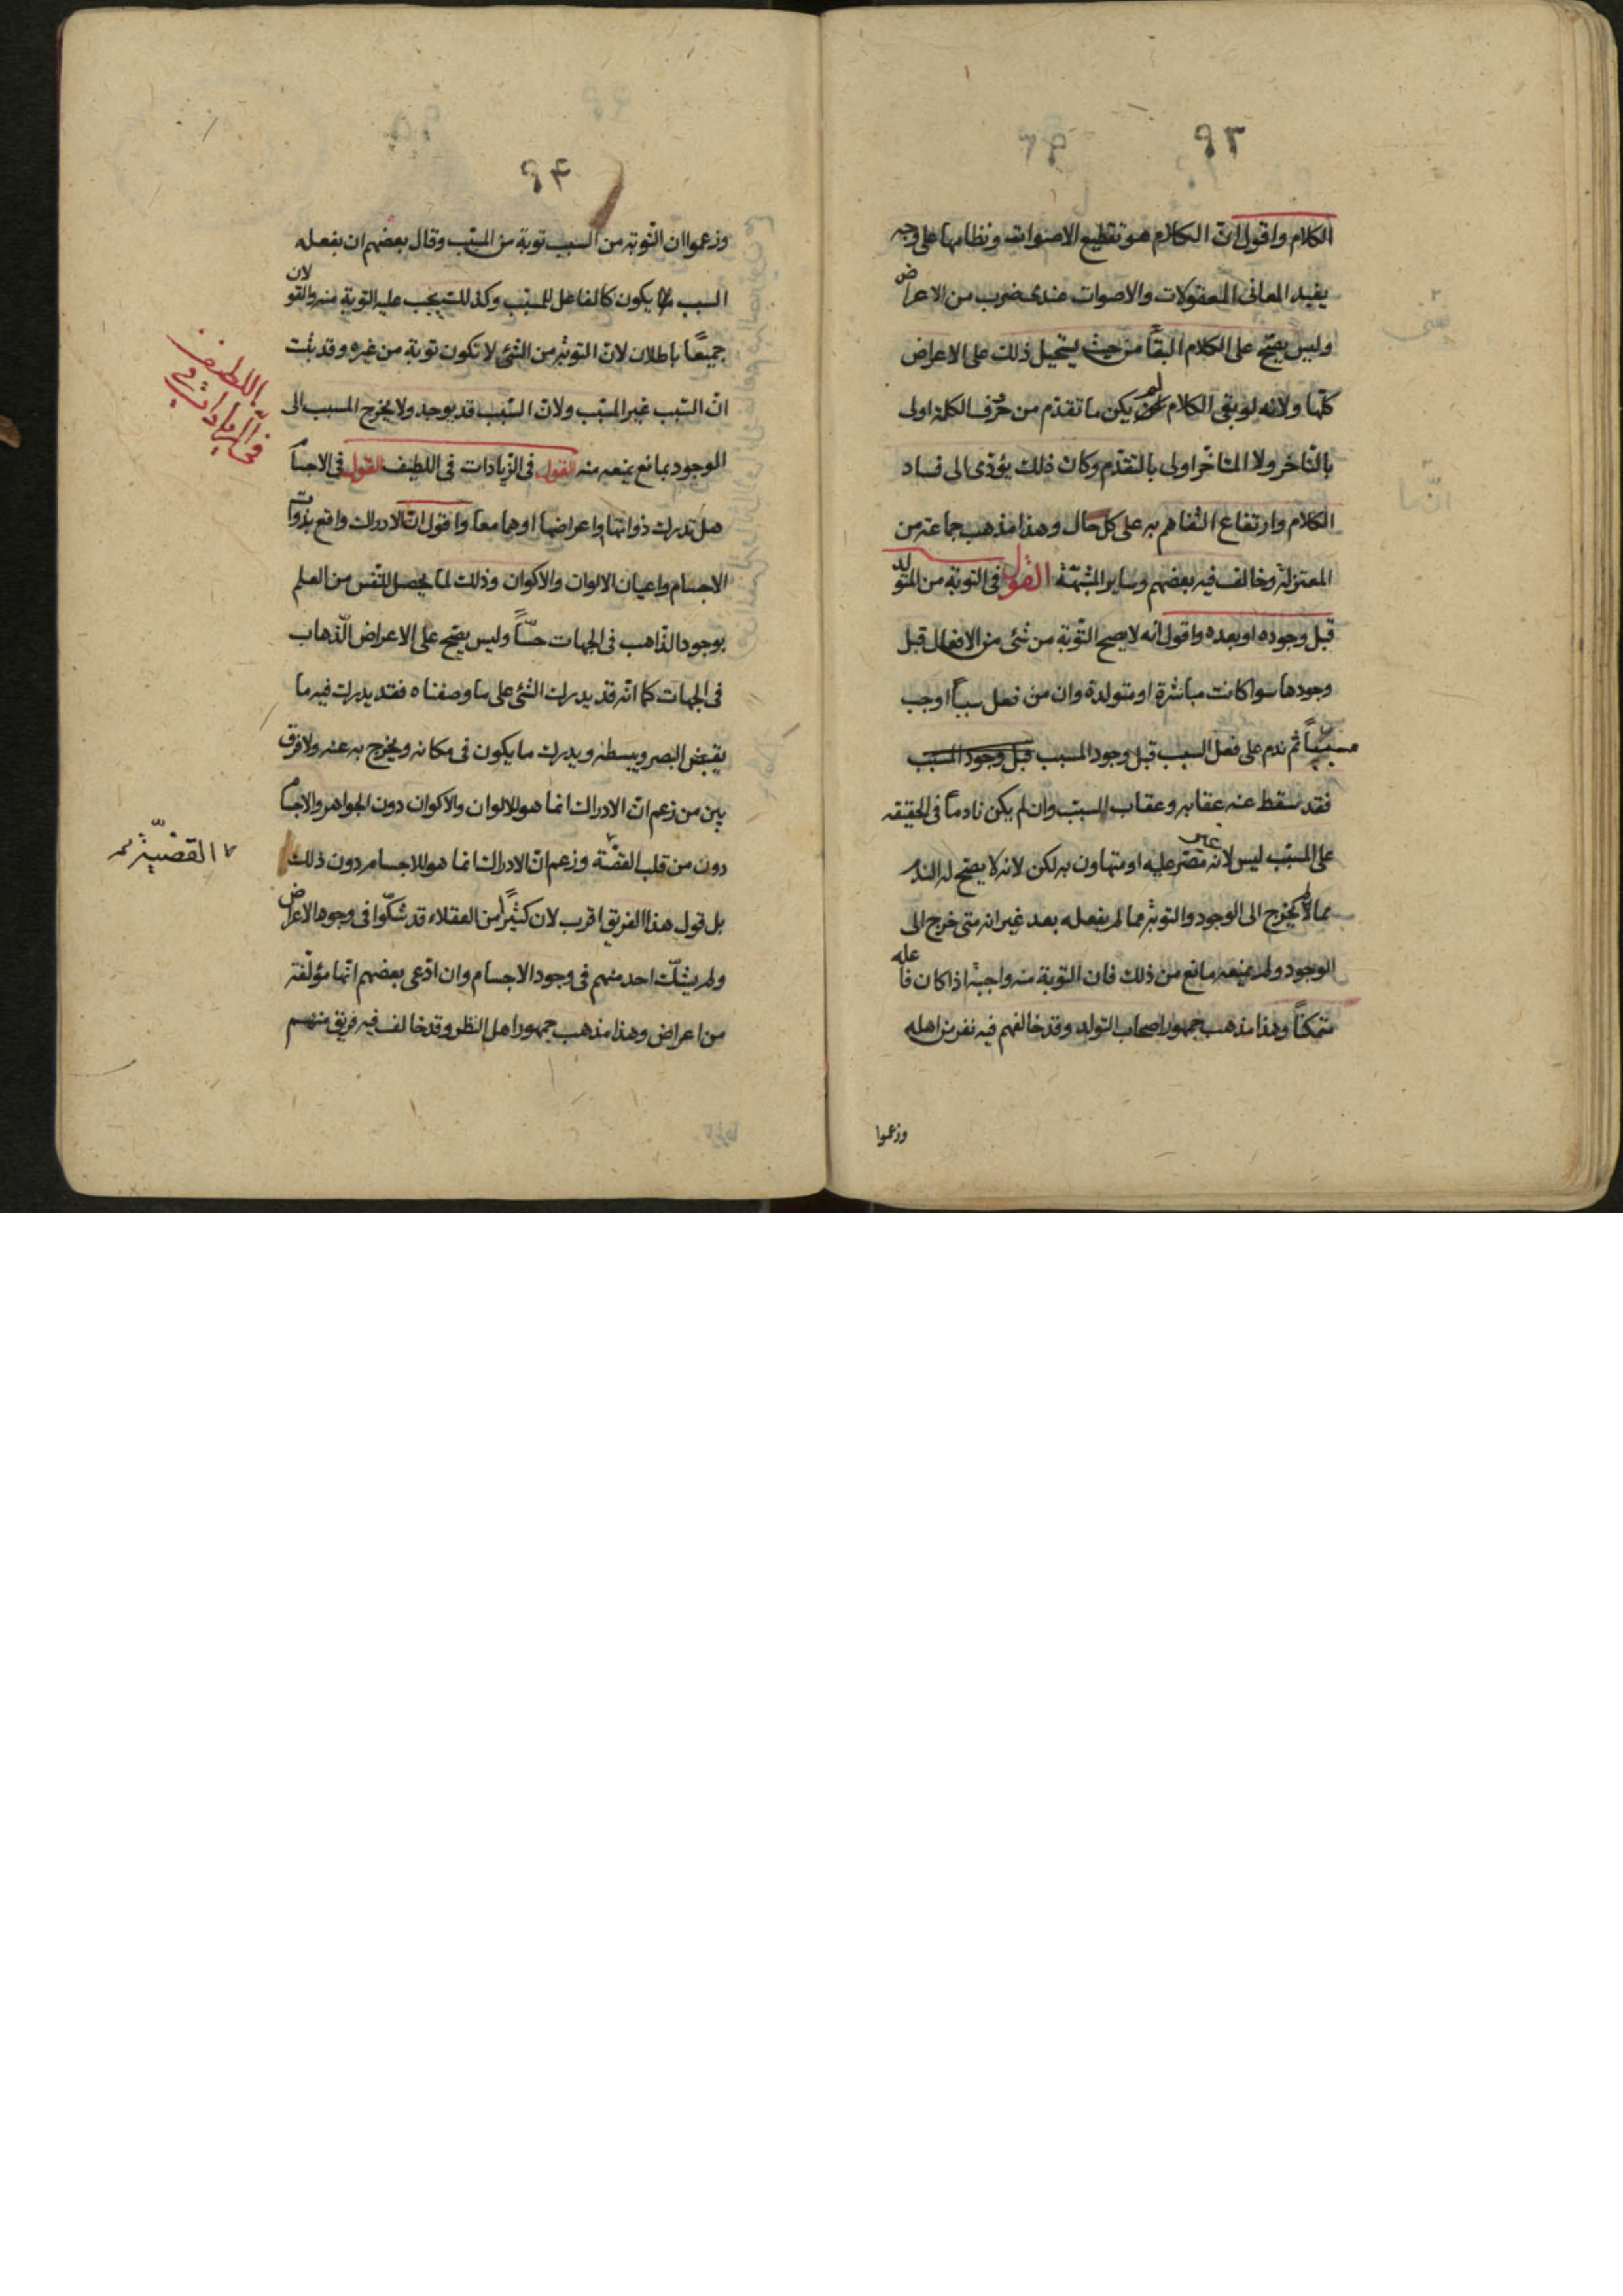 ٩٣
الكلام واقول انّ الكلام هو تقطيع الاصوات ونظامها على وجه
يفيد المعانى المعقولات والاصوات عندى ضرب من الاعراض
وليس يصّح على الكلام البقآ من حيث يستحيل ذلك على الاعراض
كلّها ولانه لو بقى الكلام لم يكن ما تقدّم من حرف الكلمة اولى
بالتاخر ولا المتاخّر اولى بالتقدّم وكان ذلك يؤدّى الى فساد
الكلام وارتفاع التفاهم به على كل حال وهذا مذهب جماعة من
المعتزلة وخالف فيه بعضهم وساير المشبّهة القول فى التوبة من المتولد
قبل وجوده او بعده واقول انه لا يصح التوبة من شئ من الافعال قبل
وجودها سوا كانت مباشرة او متولدة وان من فعل سبباً اوجب
مسبباً ثم ندم على فعل السبب قبل وجود المسبب قبل وجود المسبب
فقد سقط عنه عقابه وعقاب المسبّب وان لم يكن نادماً فى الحقيقه
على المسبّب ليس لانّه مصّر عليه او متهاون به لكن لانه لا يصّح له الندم
مما لم يخرج الى الوجود والتوبة مما لم يفعله بعد غير انه متى خرج الى
الوجود ولم يمنعه مانع من ذلك فان التوبة منه واجبة اذا كان فاعله
متمكناً وهذا مذهب جمهور اصحاب التولد وقد خالفهم فيه نفر من اهله
وزعموا
٩٤
وزعموا ان التوبة من السبب توبة من المسبّب وقال بعضهم ان بفعله
السبب يكون كالفاعل للمسبّب وكذلك يجب عليه التوبة منه والقولان
جميعًا باطلان لانّ التوبة من الشئ لا تكون توبة من غيره وقد ثبت
انّ السّبب غير المسبّب ولانّ السّبب قد يوجد ولا يخرج المسبب الى
الوجود بمانع يمنعه منه القول فى الزّيادات فى اللطيف القول فى الاجسام
هل تدرك ذواتها واعراضها او هما معا واقول انّ الادراك واقع بذوات
الاجسام واعيان الالوان والاكوان وذلك لما يحصل للنّفس من العلم
بوجود الذاهب فى الجهات حسّاً وليس يصّح على الاعراض الذّهاب
فى الجهات كما انّه قد يدرك الشئ على ما وصفناه فقد يدرك فيه ما
يقبض البصر ويبسطه ويدرك ما يكون فى مكانه ويخرج به عنه ولا فرق
بين من زعم انّ الادراك انما هو للالوان والاكوان دون الجواهر والاجسام
دون من قلب القصّة وزعم انّ الادراك انما هو للاجسام دون ذلك
بل قول هذا الفريق اقرب لان كثيراً من العقلاء قد شكّوا فى وجود الاعراض
ولم يشكّ احد منهم فى وجود الاجسام وان ادّعى بعضهم انّها مؤلّفة
من اعراض وهذا مذهب جمهور اهل النظر وقد خالف فيه فريق منهم
القضيّة